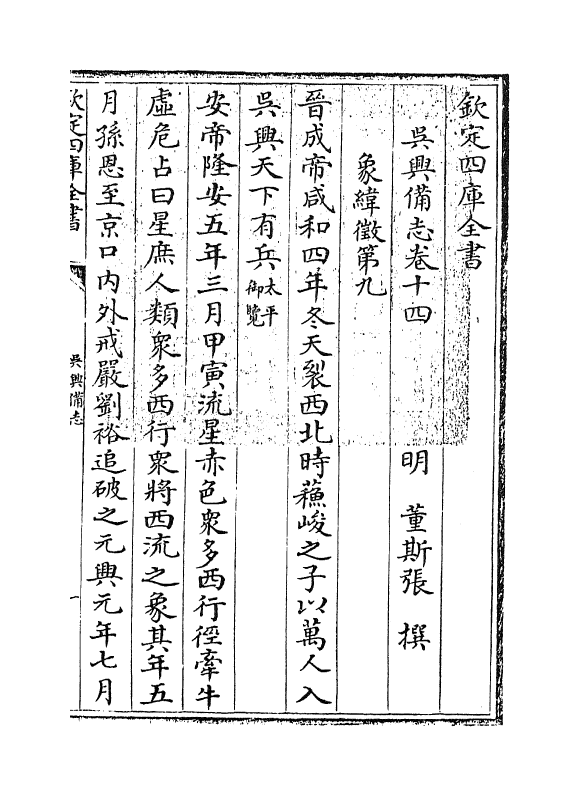 欽定四庫全書
吳興備志卷十四
明　董斯張　撰
象緯徵第九
晉成帝咸和四年冬天裂西北時蘓峻之子以萬人入
吳興天下有兵太平
御覽
安帝隆安五年三月甲寅流星赤色衆多西行徑牽牛
虛危占曰星庶人類衆多西行衆將西流之象其年五
月孫恩至京口内外戒嚴劉裕追破之元興元年七月
欽定四庫全書
吳興備志
一